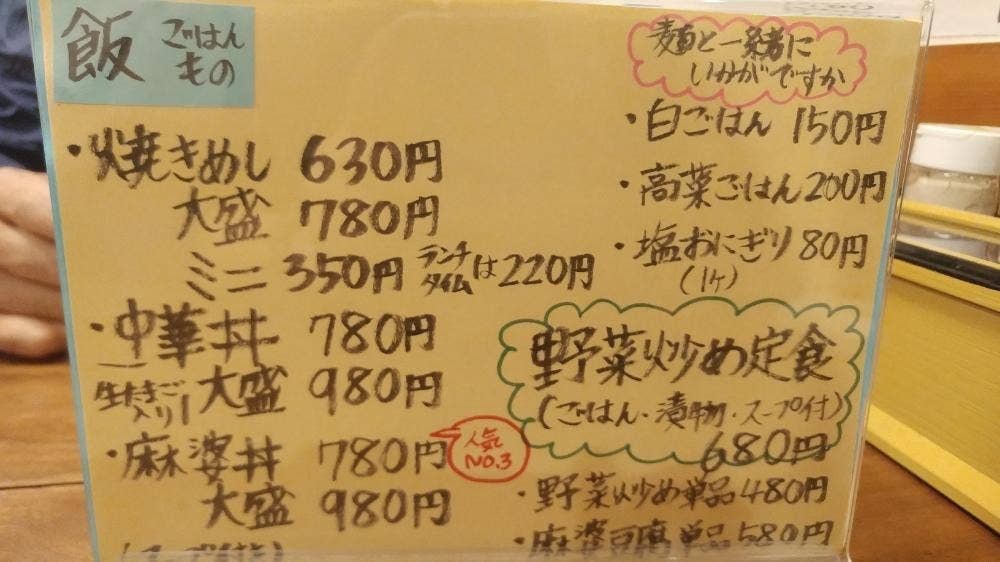 飯 ごはん
もの
・焼きめし 630円
大盛 780円
ミニ 350円 ランチタイムは220円
・中華丼 780円
生たまご入り! 大盛 980円
・麻婆丼 780円
人気
NO.3
大盛 980円
麺と一緒に
いかがですか
・白ごはん 150円
・高菜ごはん 200円
・塩おにぎり 80円
(1ヶ)
野菜炒め定食
(ごはん・漬物・スープ付)
680円
・野菜炒め単品 480円
・麻婆豆腐単品 580円